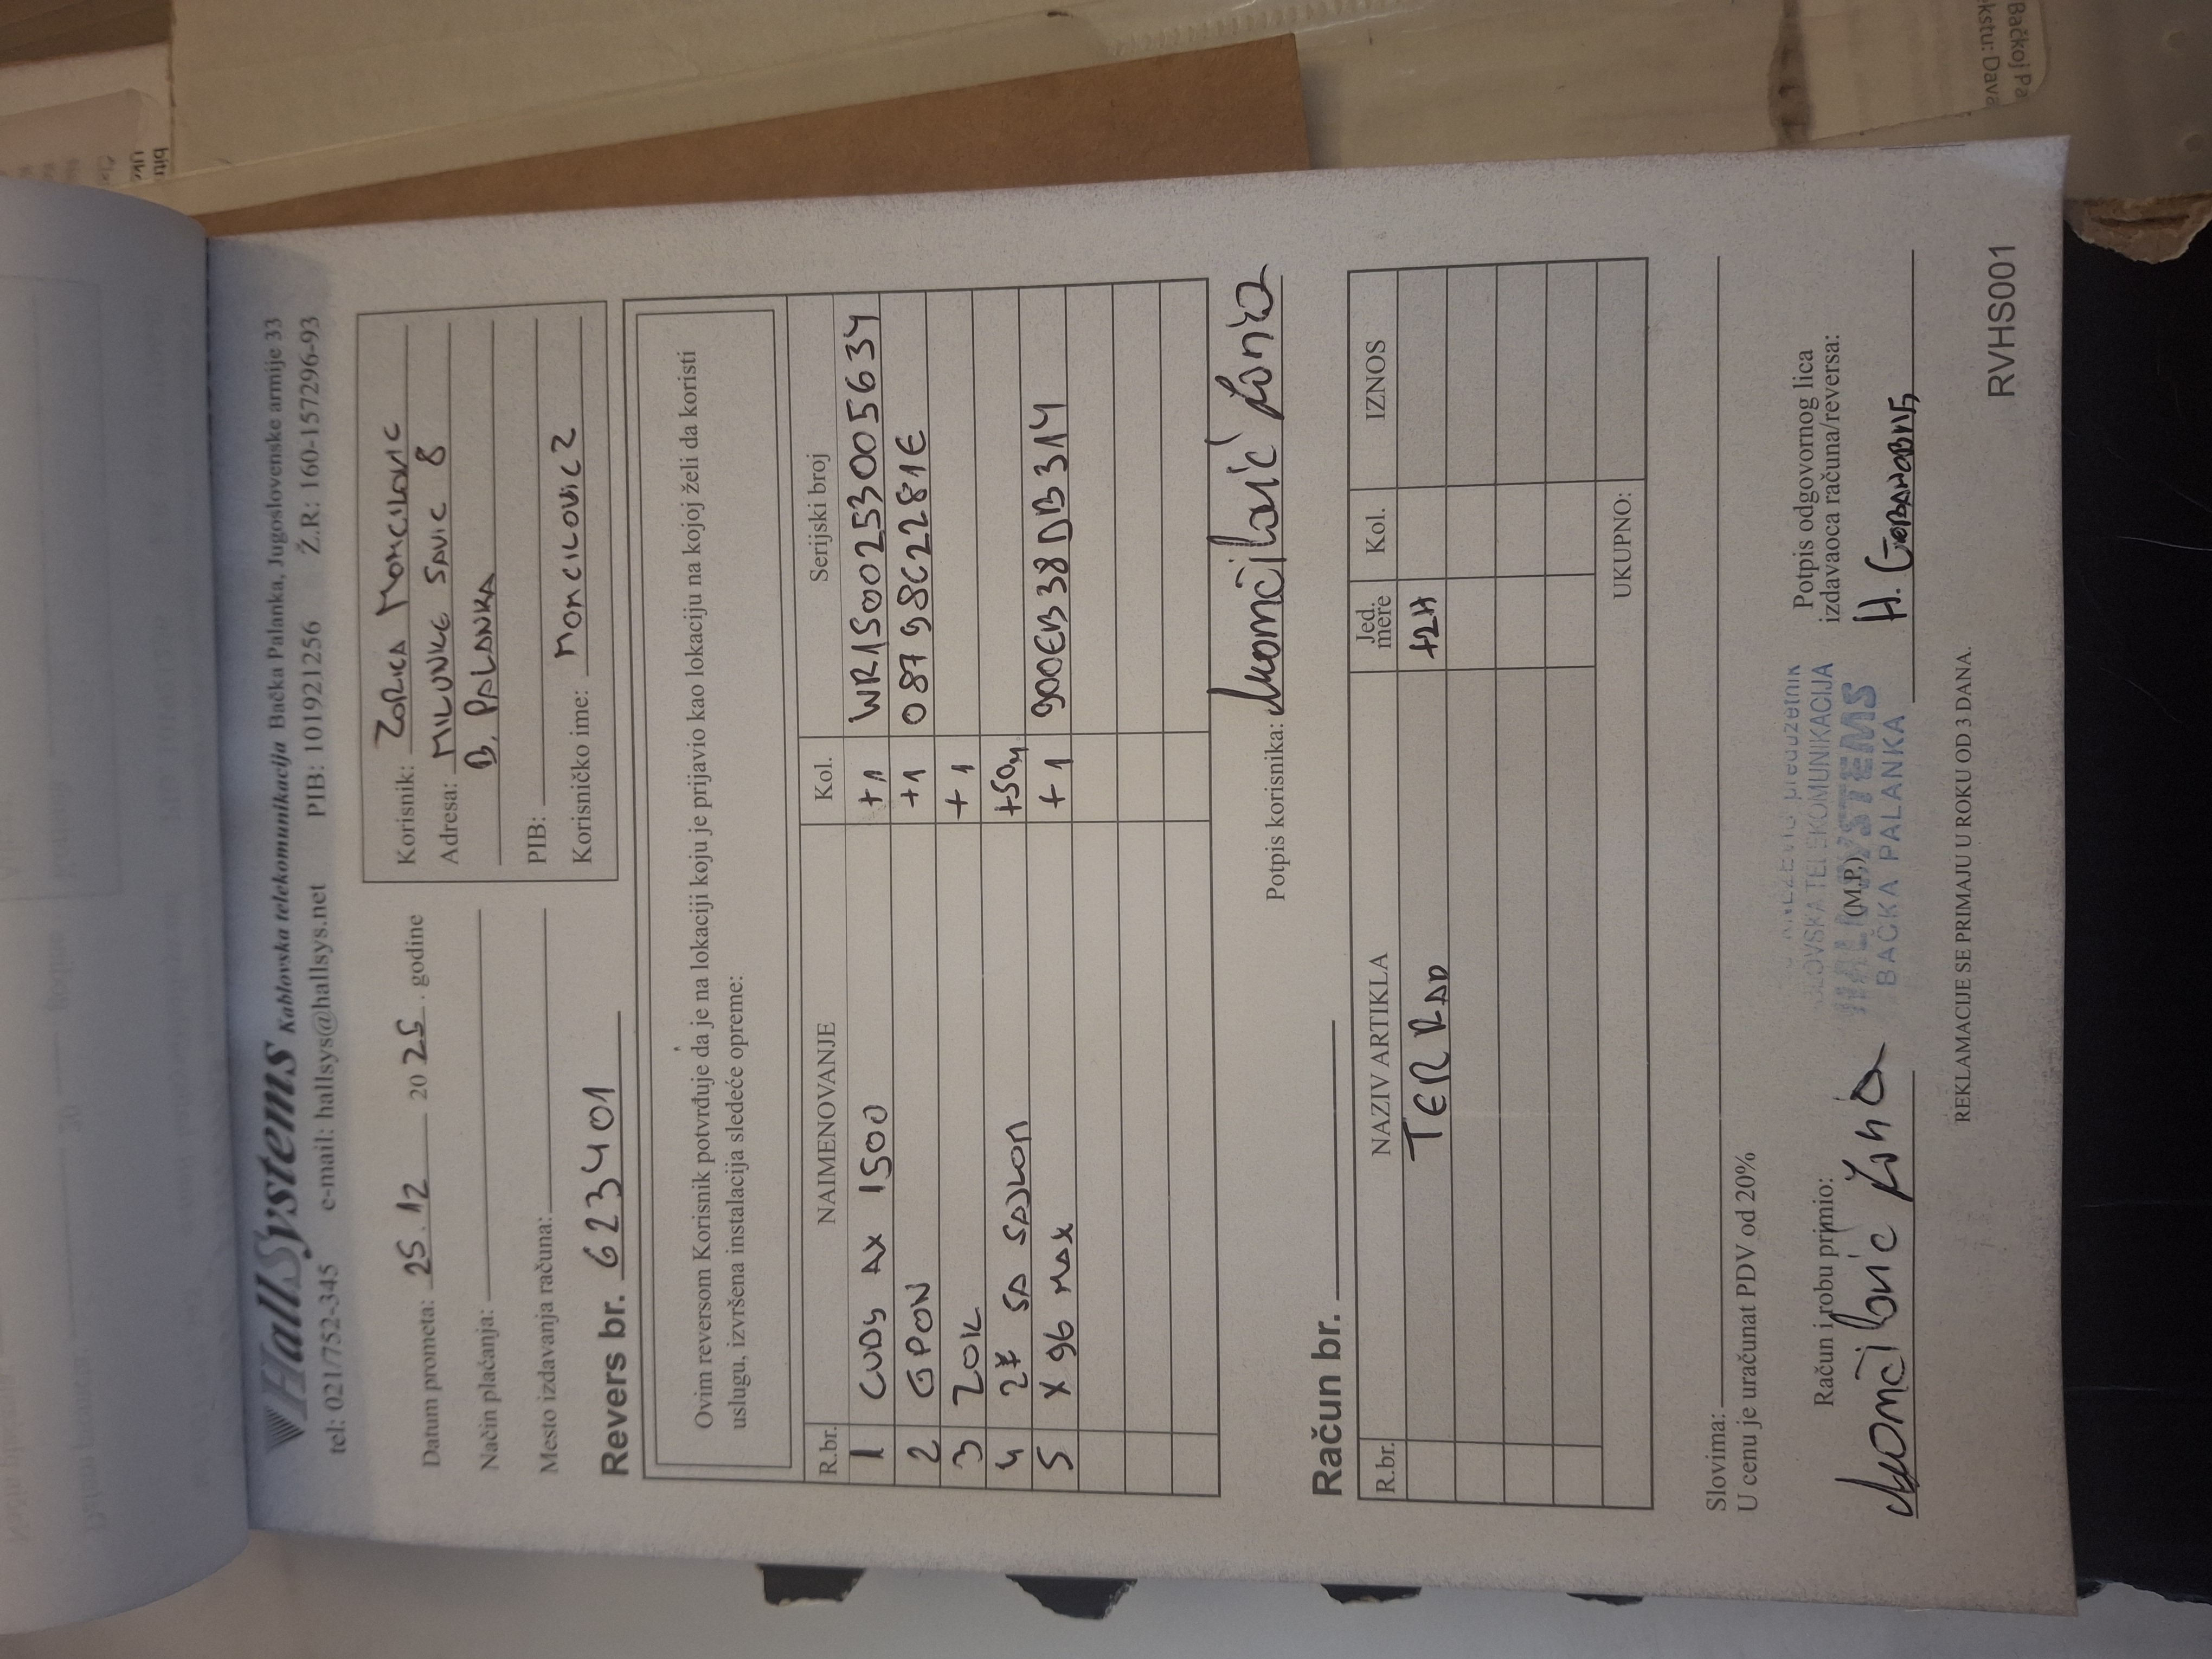 HallSystems Kablovska telekomunikacija Bačka Palanka, Jugoslovenske armije 33
tel: 021/752-345 e-mail: hallsys@hallsys.net PIB: 101921256 Ž.R: 160-157296-93
Datum prometa: 25.12 2025. godine
Način plaćanja:
Mesto izdavanja računa:
Korisnik: ZORICA MOMCILOVIC
Adresa: MILUNKE SAVIC 8
B. PALANKA
PIB:
Korisničko ime: MOMCILOVICZ
Revers br. 623401
Ovim reversom Korisnik potvrđuje da je na lokaciji koju je prijavio kao lokaciju na kojoj želi da koristi
uslugu, izvršena instalacija sledeće opreme:
R.br. NAIMENOVANJE Kol. Serijski broj
1 CUDY AX 1500 +1 WR1500253005634
2 GPON +1 08798C2281E
3 ZOK +1
4 2* SA SAJLOM +50m
5 X96 MAX +1 900EB38DB314
Potpis korisnika: Momčilović Zorica
Račun br.
R.br. NAZIV ARTIKLA Jed. mere Kol. IZNOS
TER RAD +2H
UKUPNO:
Slovima:
U cenu je uračunat PDV od 20%
Račun i robu primio:
Momčilović Zorica
(M.P.)
preduzetnik
TELEKOMUNIKACIJA
HALL SYSTEMS
BAČKA PALANKA
Potpis odgovornog lica
izdavaoca računa/reversa:
Н.
REKLAMACIJE SE PRIMAJU U ROKU OD 3 DANA.
RVHS001
Bačkoj Pa
kstu: Dava